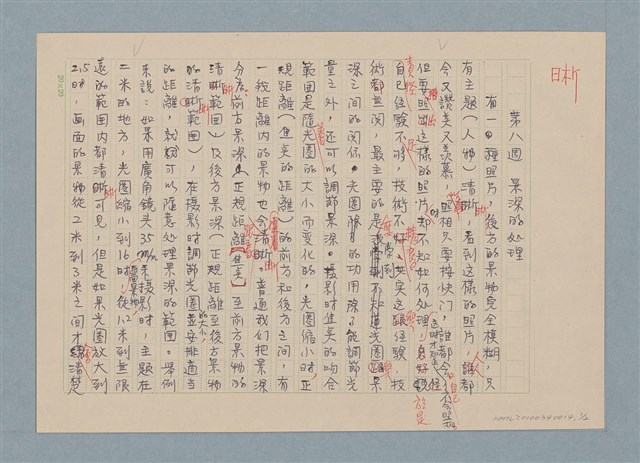 第八週 景深的處理
有一種照片，後方的景物完全模糊，只
有主題（人物）清晰，看到這樣的照片，誰都
會讚美又羨慕，照相只要按快門，誰都會，
但要照出這樣的照片却不知如何處理，
自己經驗不夠，技術不好，其实這跟經驗，技
術都無関，最主要的是
深之間的関係。光圈除的功用除了能調節光
量之外，还可以調節景深。攝影時焦矣的吻合
範囲是隨光圈的大小而变化的，光圈縮小時，正
規距離（焦矣的距離）的前方和後方之間，有
一段距離内的景物也会清晰。普通我们把景深
分為：前方景深（正規距離【焦矣】至前方景物的
清晰範囲）及後方景深（正規距離至後方景物
的清晰範囲），在攝影時調節光圈的大小，並安排適当
的距離，就可以隨意处理景深的範囲。舉例
來説：如果用廣角鏡头35m/m來攝影時，主題在
二米的地方，光圈縮小到16時，從1.2米到無限
遠的範囲内都清晰可見，但是如果光圈放大到
2.5時，画面的景物從2米到3米之間才清楚
晰
20×20
NMTL20100340014, 1/2